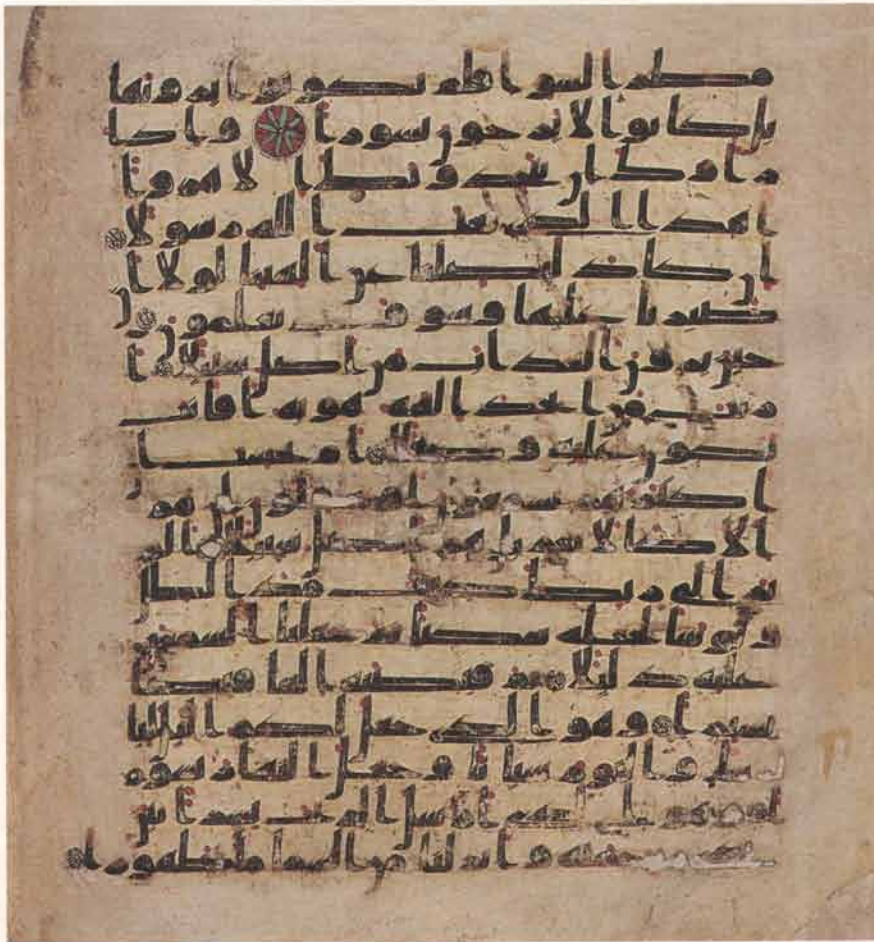 مطر السو افلم يكونوا يرونها
بل كانوا لا يرجون نشورا واذا
راوك ان يتخذونك الا هزوا
اهذا الذي بعث الله رسولا
ان كاد ليضلنا عن الهتنا لولا ان
صبرنا عليها وسوف يعلمون
حين يرون العذاب من اضل سبيلا ا
ريت من اتخذ الهه هويه افانت
تكون عليه وكيلا ام تحسب ا
ن اكثرهم يسمعون او يعقلون ان هم
الا كالانعم بل هم اضل سبيلا الم
تر الى ربك كيف مد الظل
ولو شا لجعله سكنا ثم جعلنا الشمس
عليه دليلا ثم قبضنه الينا قبضا
يسيرا وهو الذي جعل لكم اليل لبا
سا والنوم سباتا وجعل النهار نشو
را وهو الذي ارسل الريح بشرا بين
يدي رحمته وانزلنا من السما ما طهورا